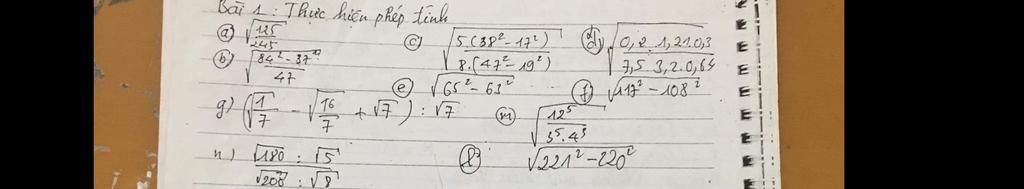 Bài 1: Thực hiện phép tính
a) √(125/245) c) √(5.(38²-17²)/8.(47²-19²)) d) √(0,2.1,21.0,3/7,5.3,2.0,64)
b) √(84²-37²/47) e) √(65²-63²) f) √(117²-108²)
g) (√(1/7) - √(16/7) + √7) : √7 m) √(12⁵/3⁵.4³)
n) √180 : √5 / √200 : √8 √(221²-220²)